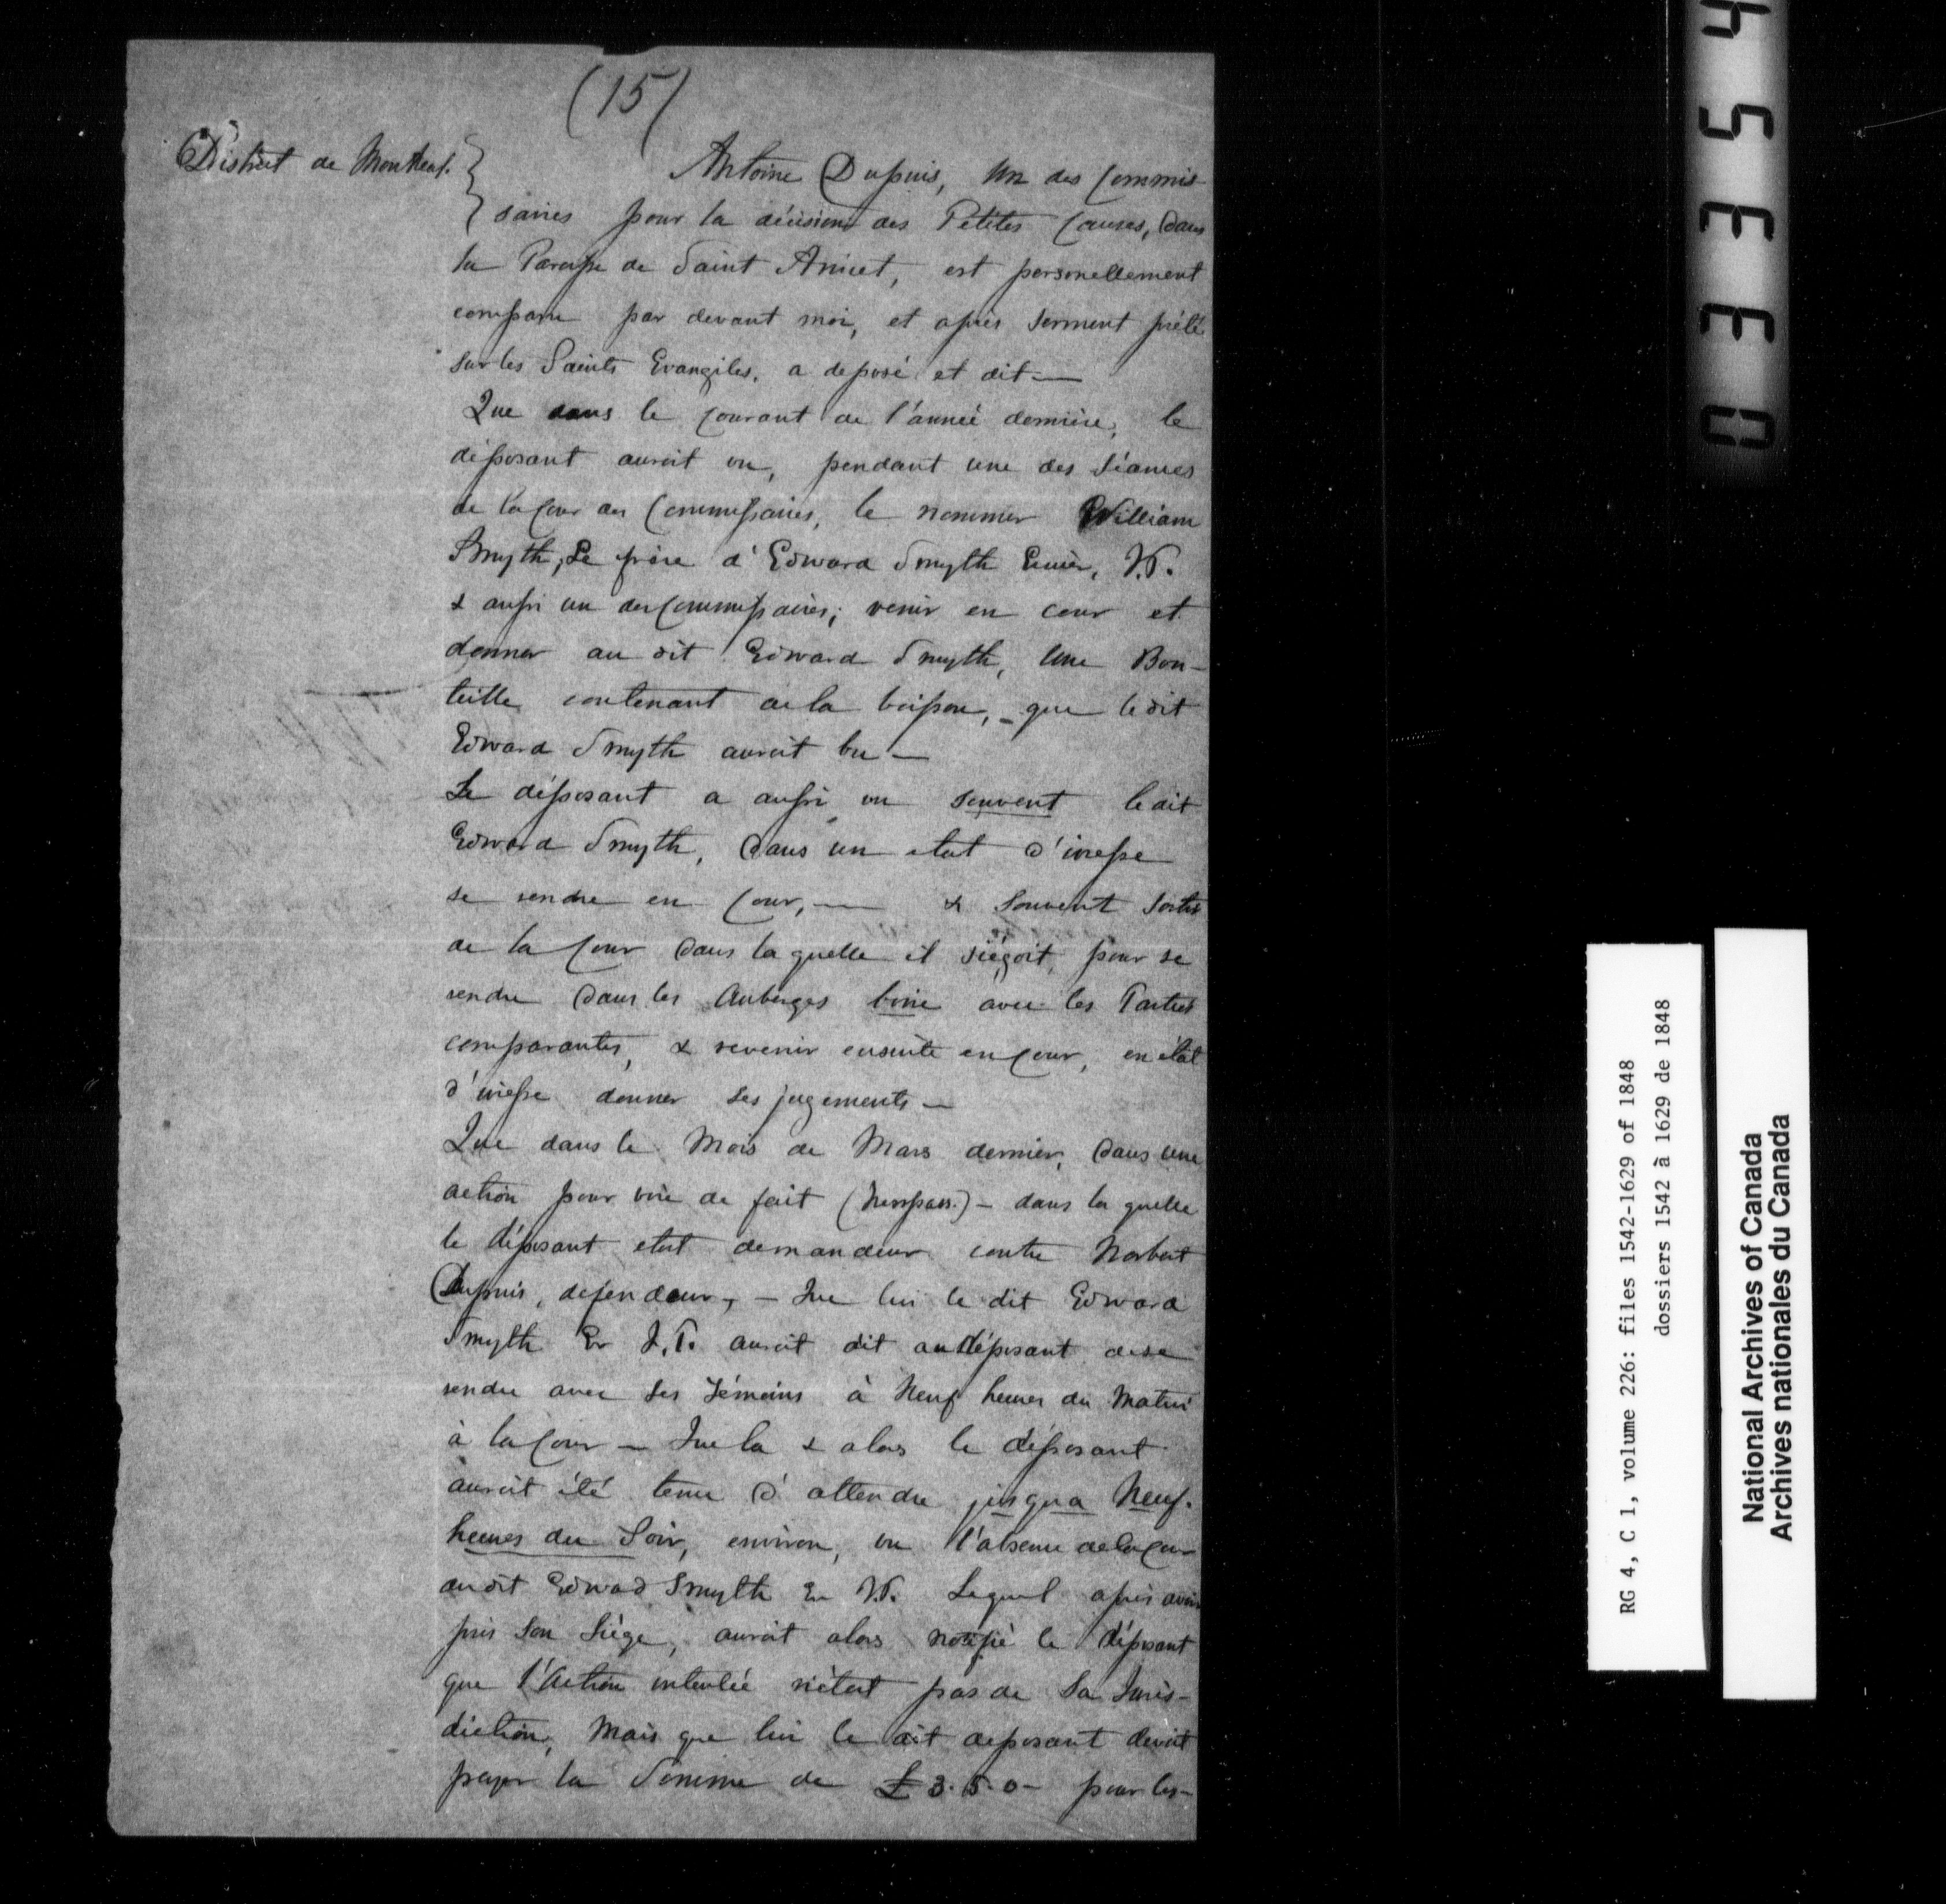 (15)
District de Montreal. }
Antoine Dupuis, un des Commis-
} saires pour la décision des Petites Causes, dans
la Paroisse de Saint Anicet, est personellement
comparu par devant moi, et après serment prété
sur les Saints Evangiles, a deposé et dit —
Que dans le courant de l'année dernière, le
déposant auroit vu, pendant une des séances
de la Cour des Commissaires, le nommer William
Smyth, Le frère d'Edward Smyth Ecuier, J.P.
& aussi un des Commissaires; venir en cour et
donner au dit Edward Smyth, une Bou-
teille contenant de la boisson, - que le dit
Edward Smyth auroit bu —
Le déposant a aussi vu souvent le dit
Edward Smyth, dans un etat d'ivresse
se rendre en Cour, — & souvent sortir
de la Cour dans la quelle il siégoit, pour se
rendre dans les Auberges boire avec les Parties
comparantes, & revenir ensuite en Cour, en état
d'ivresse donner ses jugements —
Que dans le Mois de Mars dernier, dans une
action pour voie de fait (Tresspass.) - dans la quelle
le déposant etoit demandeur contre Norbert
Dupuis, defendeur, - Que lui le dit Edward
Smyth Er J.P. auroit dit au déposant de se
rendre avec ses témoins à Neuf heures du Matin
à la Cour — Que la & alors le déposant
auroit été tenu d'attendre jusqua Neuf.
heures du Soir, environ, vu l'absence de la Cour
du dit Edward Smyth Er J.P. Lequel après avoir
pris son Siége, auroit alors notifié le déposant
que l'Action intentée n'étoit pas de sa Juris-
diction, Mais que lui le dit deposant devoit
payer la Somme de £3.5.0- pour les-
0 3 3 5 4
RG 4, C 1, volume 226: files 1542-1629 of 1848
dossiers 1542 à 1629 de 1848
National Archives of Canada
Archives nationales du Canada